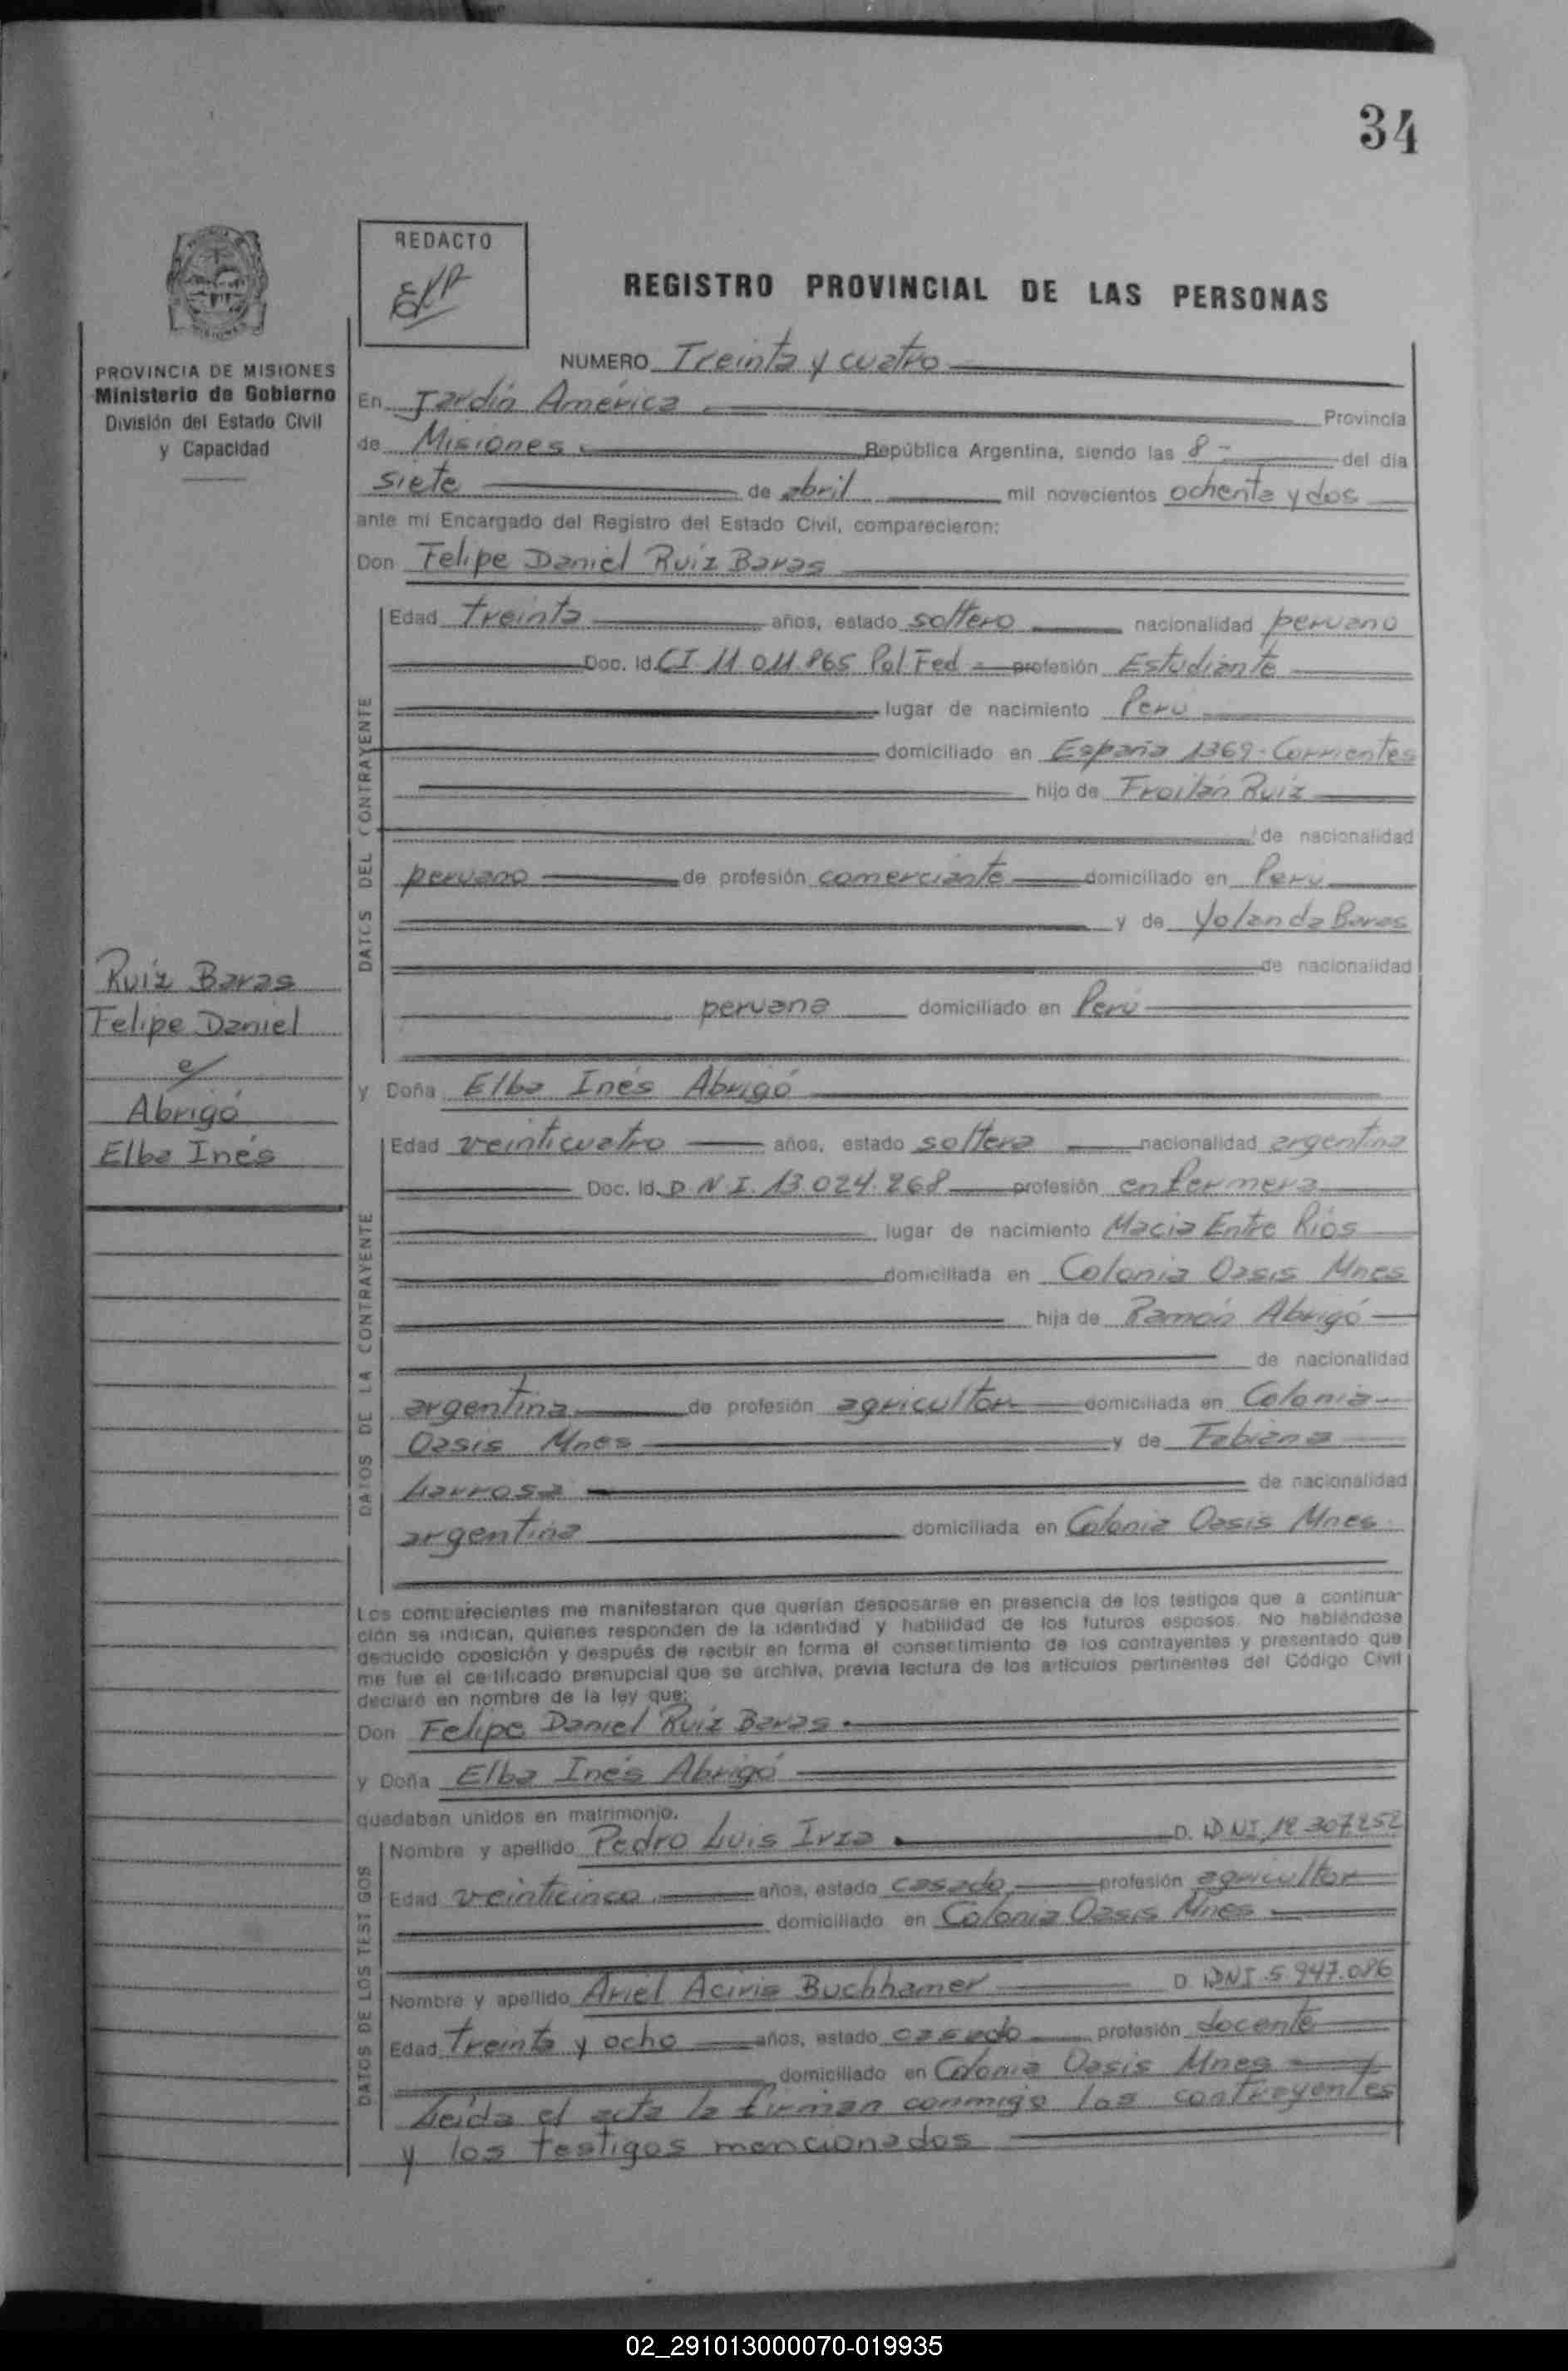 34
REDACTO
REGISTRO PROVINCIAL DE LAS PERSONAS
PROVINCIA DE MISIONES
Ministerio de Gobierno
División del Estado Civil
y Capacidad
NUMERO Treinta y cuatro
En Jardín América Provincia
de Misiones República Argentina, siendo las 8 - del día
siete de abril mil novecientos ochenta y dos
ante mí Encargado del Registro del Estado Civil, comparecieron:
Don Felipe Daniel Ruiz Baras
DATOS DEL CONTRAYENTE
Edad treinta años, estado soltero nacionalidad peruano
Doc. Id. CI 11.011.865 Pol Fed profesión Estudiante
lugar de nacimiento Peru
domiciliado en España 1369 - Corrientes
hijo de Froilán Ruiz
de nacionalidad
peruano de profesión comerciante domiciliado en Peru
y de Yolanda Baras
de nacionalidad
peruana domiciliado en Perú
Ruiz Baras
Felipe Daniel
c/
Abrigó
Elba Inés
y Doña Elba Inés Abrigó
DATOS DE LA CONTRAYENTE
Edad veinticuatro años, estado soltera nacionalidad argentina
Doc. Id. D.N.I. 13.024.268 profesión enfermera
lugar de nacimiento Macia Entre Ríos
domiciliada en Colonia Oasis Mnes
hija de Ramón Abrigó
de nacionalidad
argentina de profesión agricultor domiciliada en Colonia
Oasis Mnes y de Fabiana
Larrosa de nacionalidad
argentina domiciliada en Colonia Oasis Mnes
Los comparecientes me manifestaron que querían desposarse en presencia de los testigos que a continua-
ción se indican, quienes responden de la identidad y habilidad de los futuros esposos. No habiéndose
deducido oposición y después de recibir en forma el consentimiento de los contrayentes y presentado que
me fue el certificado prenupcial que se archiva, previa lectura de los artículos pertinentes del Código Civil
declaré en nombre de la ley que:
Don Felipe Daniel Ruiz Baras
y Doña Elba Inés Abrigó
quedaban unidos en matrimonio.
DATOS DE LOS TESTIGOS
Nombre y apellido Pedro Luis D. DNI 12.307.252
Edad veinticinco años, estado casado profesión agricultor
domiciliado en Colonia Oasis Mnes
Nombre y apellido Ariel Buchhamer D. DNI 5.947.086
Edad treinta y ocho años, estado casado profesión docente
domiciliado en Colonia Oasis Mnes
Leída el acta la firman conmigo los contrayentes
y los testigos mencionados
02_291013000070-019935